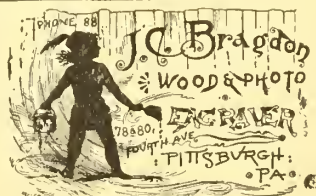 PHONE 88
J.C. Bragdon
WOOD & PHOTO
ENGRAVER
78&80,
FOURTH AVE
PITTSBURGH:
PA